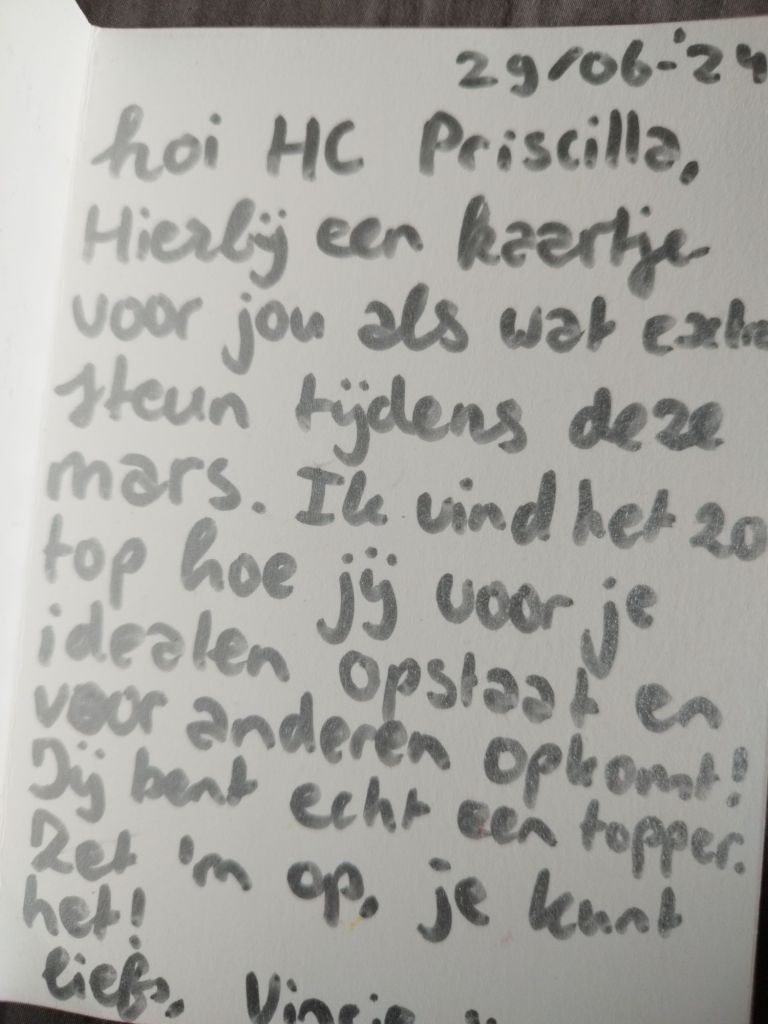 29/06-'24
hoi HC Priscilla,
Hierbij een kaartje
voor jou als wat extra
steun tijdens deze
mars. Ik vind het zo
top hoe jij voor je
idealen opstaat en
voor anderen opkomt!
Jij bent echt een topper.
Zet 'm op, je kunt
het!
liefs,